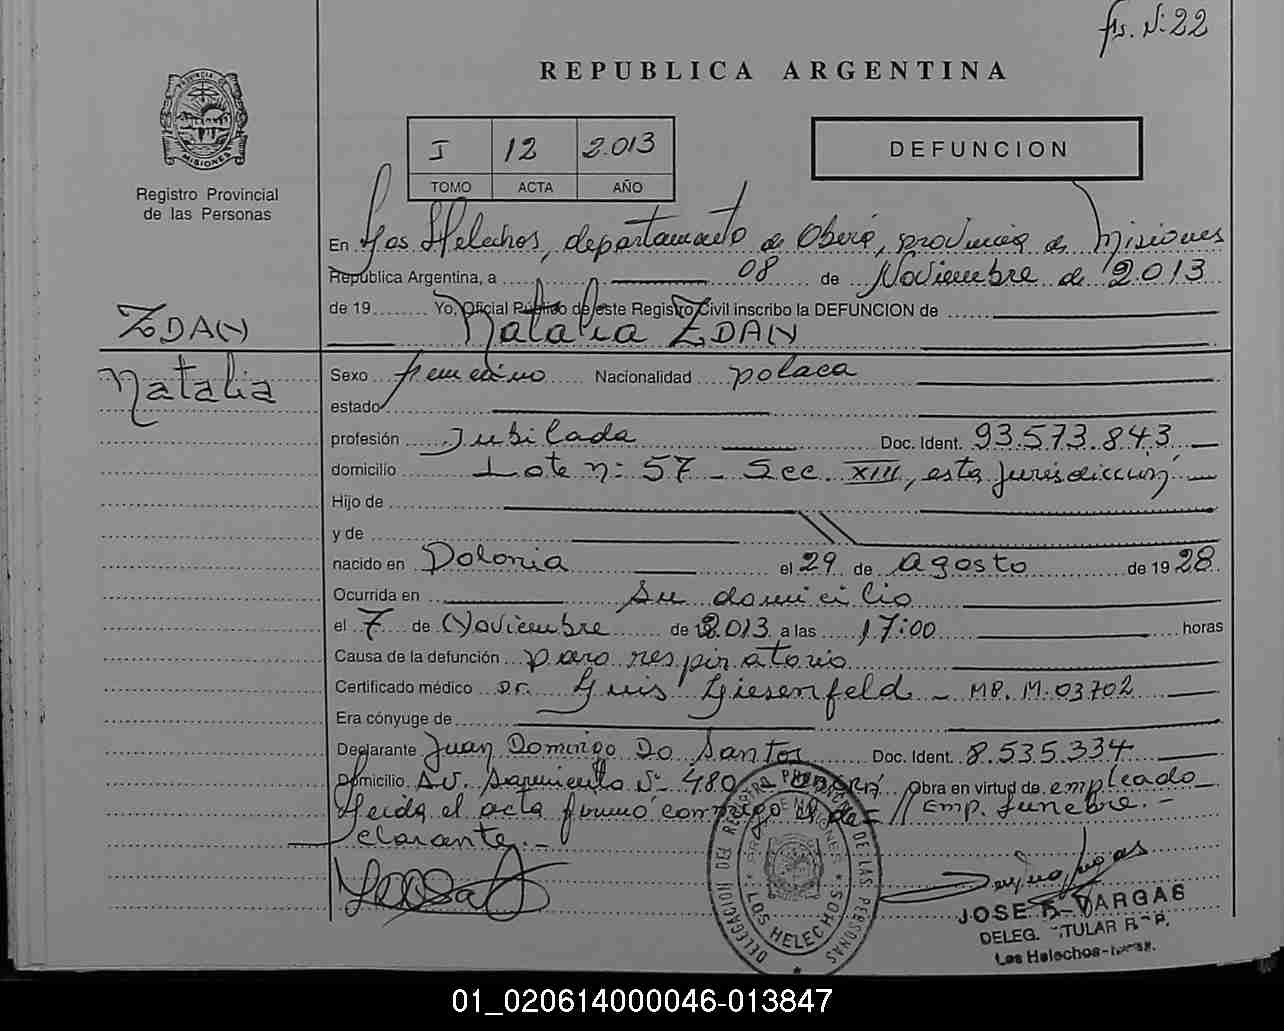 fs. N: 22
REPUBLICA ARGENTINA
PROVINCIA DE
MISIONES
Registro Provincial
de las Personas
I 12 2.013
TOMO ACTA AÑO
DEFUNCION
En Los Helechos, departamento de Oberá, provincia de Misiones
República Argentina, a 08 de Noviembre de 2.013
de 19 Yo, Oficial Público de este Registro Civil inscribo la DEFUNCION de
Natalia ZDAN
ZDAN
Natalia
Sexo femenino Nacionalidad polaca
estado
profesión Jubilada Doc. Ident. 93.573.843
domicilio Lote n: 57 - Secc. XIII, esta jurisdicción
Hijo de
y de
nacido en Polonia el 29 de agosto de 1928
Ocurrida en su domicilio
el 7 de Noviembre de 2.013 a las 17:00 horas
Causa de la defunción paro respiratorio
Certificado médico Dr. Luis Giesenfeld - MP. M. 03702
Era cónyuge de
Declarante Juan Domingo Do Santos Doc. Ident. 8.535.334
Domicilio Av. Sarmiento N° 480 - OBERÁ Obra en virtud de empleado
Leida el acta firmó conmigo el de= // Emp. funebre.-
clarante.-
DELEGACION DEL REGISTRO PROVINCIAL DE LAS PERSONAS
LOS HELECHOS
JOSE R. VARGAS
DELEG. TITULAR R.P.
Los Helechos-
01_020614000046-013847